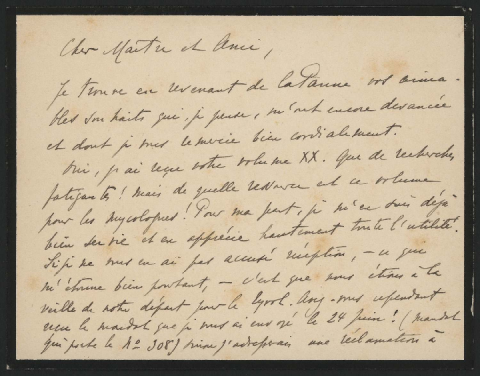 Cher Maître et Ami,
Je trouve en revenant de la Panne vos aima-
bles souhaits qui, je pense, m'ont encore devancée
et dont je vous remercie bien cordialement.
Oui, j'ai reçu votre volume XX. Que de recherches
fatigantes! mais de quelle ressource est ce volume
pour les mycologues! Pour ma part, je m'en suis déjà
bien servie et en apprécie hautement toute l'utilité.
Si je ne vous en ai pas accusé réception, – ce qui
m'étonne bien pourtant, – c'est que nous étions à la
veille de notre départ pour le Tyrol. Avez-vous cependant
reçu le mandat que je vous ai envoyé le 24 juin? (mandat
qui porte le No 308) sinon j'adresserais une réclamation à